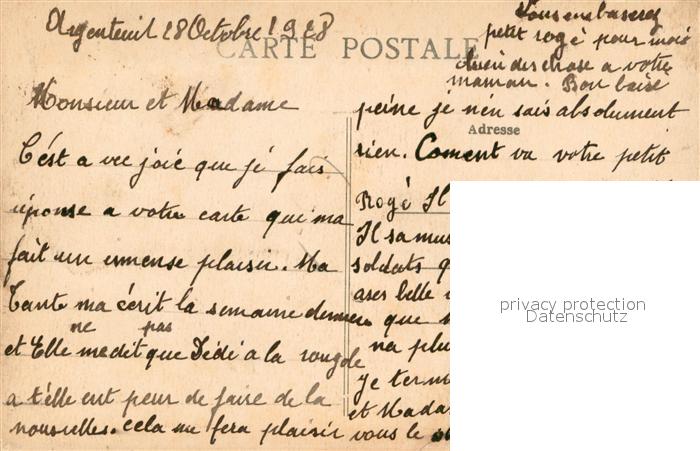 Argenteuil 28 Octobre 1928
CARTE POSTALE
Monsieur et Madame
C'est a vec joie que je fais
réponse a votre carte qui ma
fait un immense plaisir. Ma
Tante ma écrit la semaine dernière
ne pas
et Elle me dit que Dédé a la rougole
a t'elle ent peur de faire de la
nouvelles. cela me fera plaisir
Adresse
peine je nen sais absolument
rien. Coment va votre petit
Rogé Il
Il samus
soldats q
aser belle
que
na plu
je term
et Mada
vous le
Vous embaserez
petit rogé pour moi
bien des chose a votre
maman. Bon baisé
privacy protection
Datenschutz